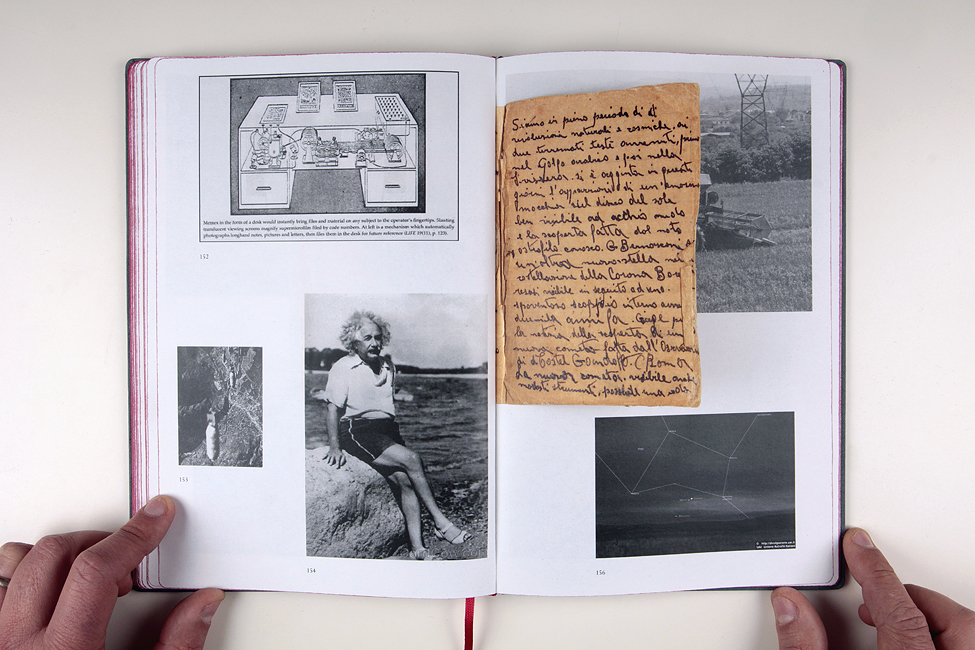 Memex in the form of a desk would instantly bring files and material on any subject to the operator's fingertips. Slanting
translucent viewing screens magnify supermicrofilm filed by code numbers. At left is a mechanism which automatically
photographs longhand notes, pictures and letters, then files them in the desk for future reference (LIFE 19(11), p. 123).
152
153
154
Siamo in pieno periodo di
rivoluzioni naturali e cosmiche, ai
due terremoti testé avvenuti, prima
nel Golfo arabico e poi nella
si è aggiunta in questi
giorni l'apparizione di un'enorme
macchia nel disco del sole
ben visibile ad occhio nudo
e la scoperta fatta dal noto
astrofilo comasco G. Bernasconi
nuova stella nella
costellazione della Corona Bor
resasi visibile in seguito ad uno
spaventoso scoppio interno
duemila anni fa.
la notizia della scoperta di una
nuova cometa fatta dall'Osservatorio
di Castel Gandolfo. (Roma
La nuova cometa, visibile anche
modesti strumenti,
156